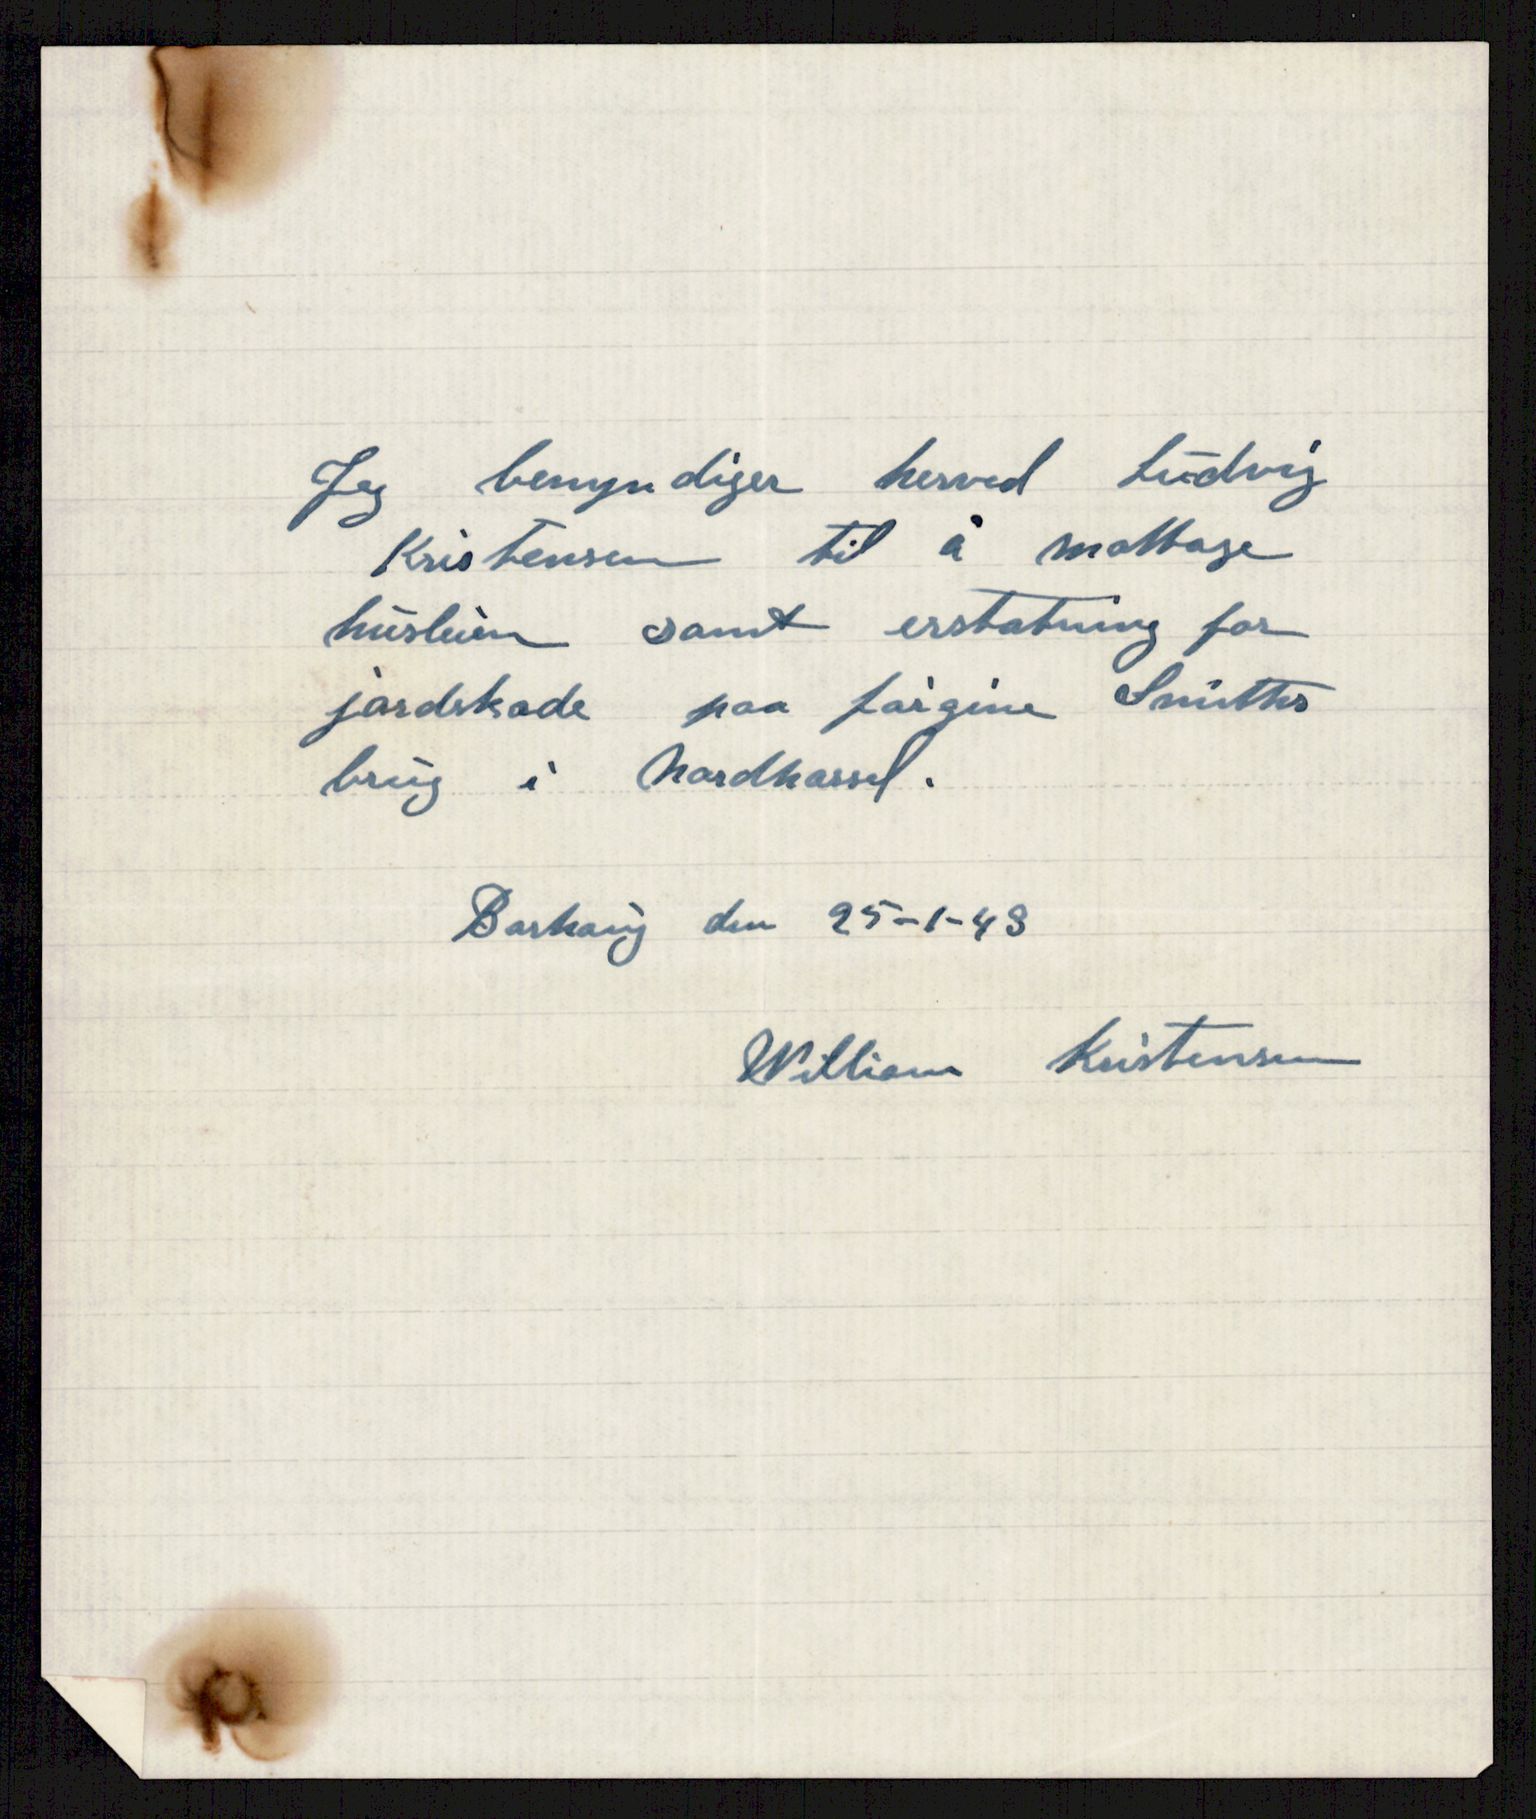 Jeg benyndiger herved Ludvig
Kristensen til å mottage
husleien samt erstatning for
jordskade paa Jørgine Smiths
brug i Nordhassel.
Borhaug den 25-1-43
William Kristensen